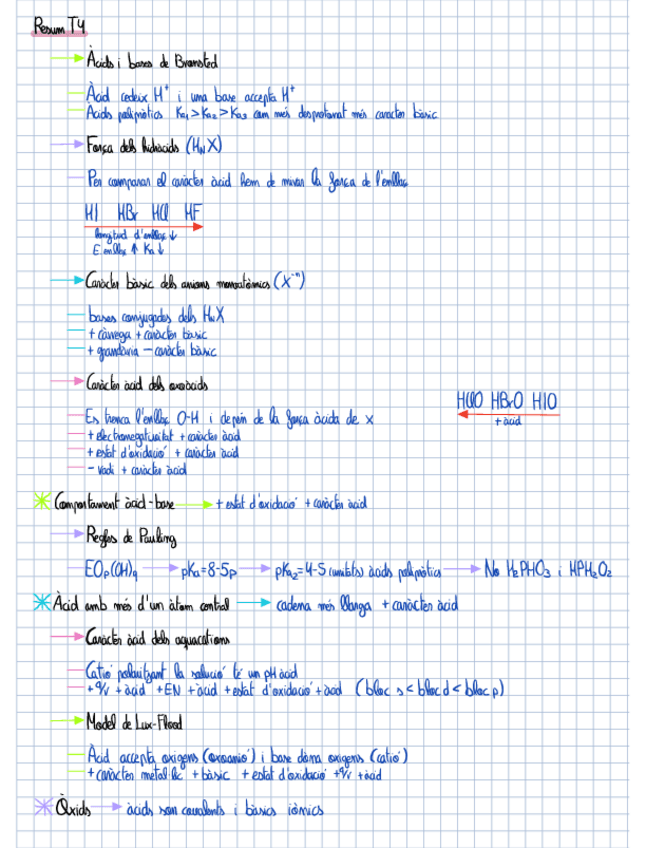 Resum T4
Àcids i bases de Bronsted
Àcid cedeix H⁺ i una base accepta H⁺
Àcids polipròtics Ka₁ > Ka₂ > Ka₃ com més desprotonat més caracter bàsic
Força dels hidràcids (HₙX)
Per comparar el caràcter àcid hem de mirar la força de l'enllaç
HI HBr HCl HF
longitud d'enllaç ↓
E enllaç ↑ Ka ↓
Caràcter bàsic dels anions monoatòmics (X⁻ⁿ)
bases conjugades dels HₙX
+ càrrega + caràcter bàsic
+ grandària − caràcter bàsic
Caràcter àcid dels oxoàcids
HClO HBrO HIO
+ àcid
Es trenca l'enllaç O-H i depèn de la força àcida de x
+ electronegativitat + caràcter àcid
+ estat d'oxidació + caràcter àcid
− radi + caràcter àcid
Comportament àcid-base → + estat d'oxidació + caràcter àcid
Regles de Pauling
EOp(OH)q → pKa=8-5p → pKa₂=4-5 (unitats) àcids polipròtics → No H₂PHO₃ i HPH₂O₂
Àcid amb més d'un àtom central → cadena més llarga + caràcter àcid
Caràcter àcid dels aquacations
Catió polaritzant la solució té un pH àcid
+q/r + àcid +EN + àcid + estat d'oxidació + àcid (bloc s < bloc d < bloc p)
Model de Lux-Flood
Àcid accepta oxigens (oxoanió) i base dóna oxigens (catió)
+ caràcter metàl·lic + bàsic + estat d'oxidació +q/r + àcid
Òxids → àcids son covalents i bàsics iònics